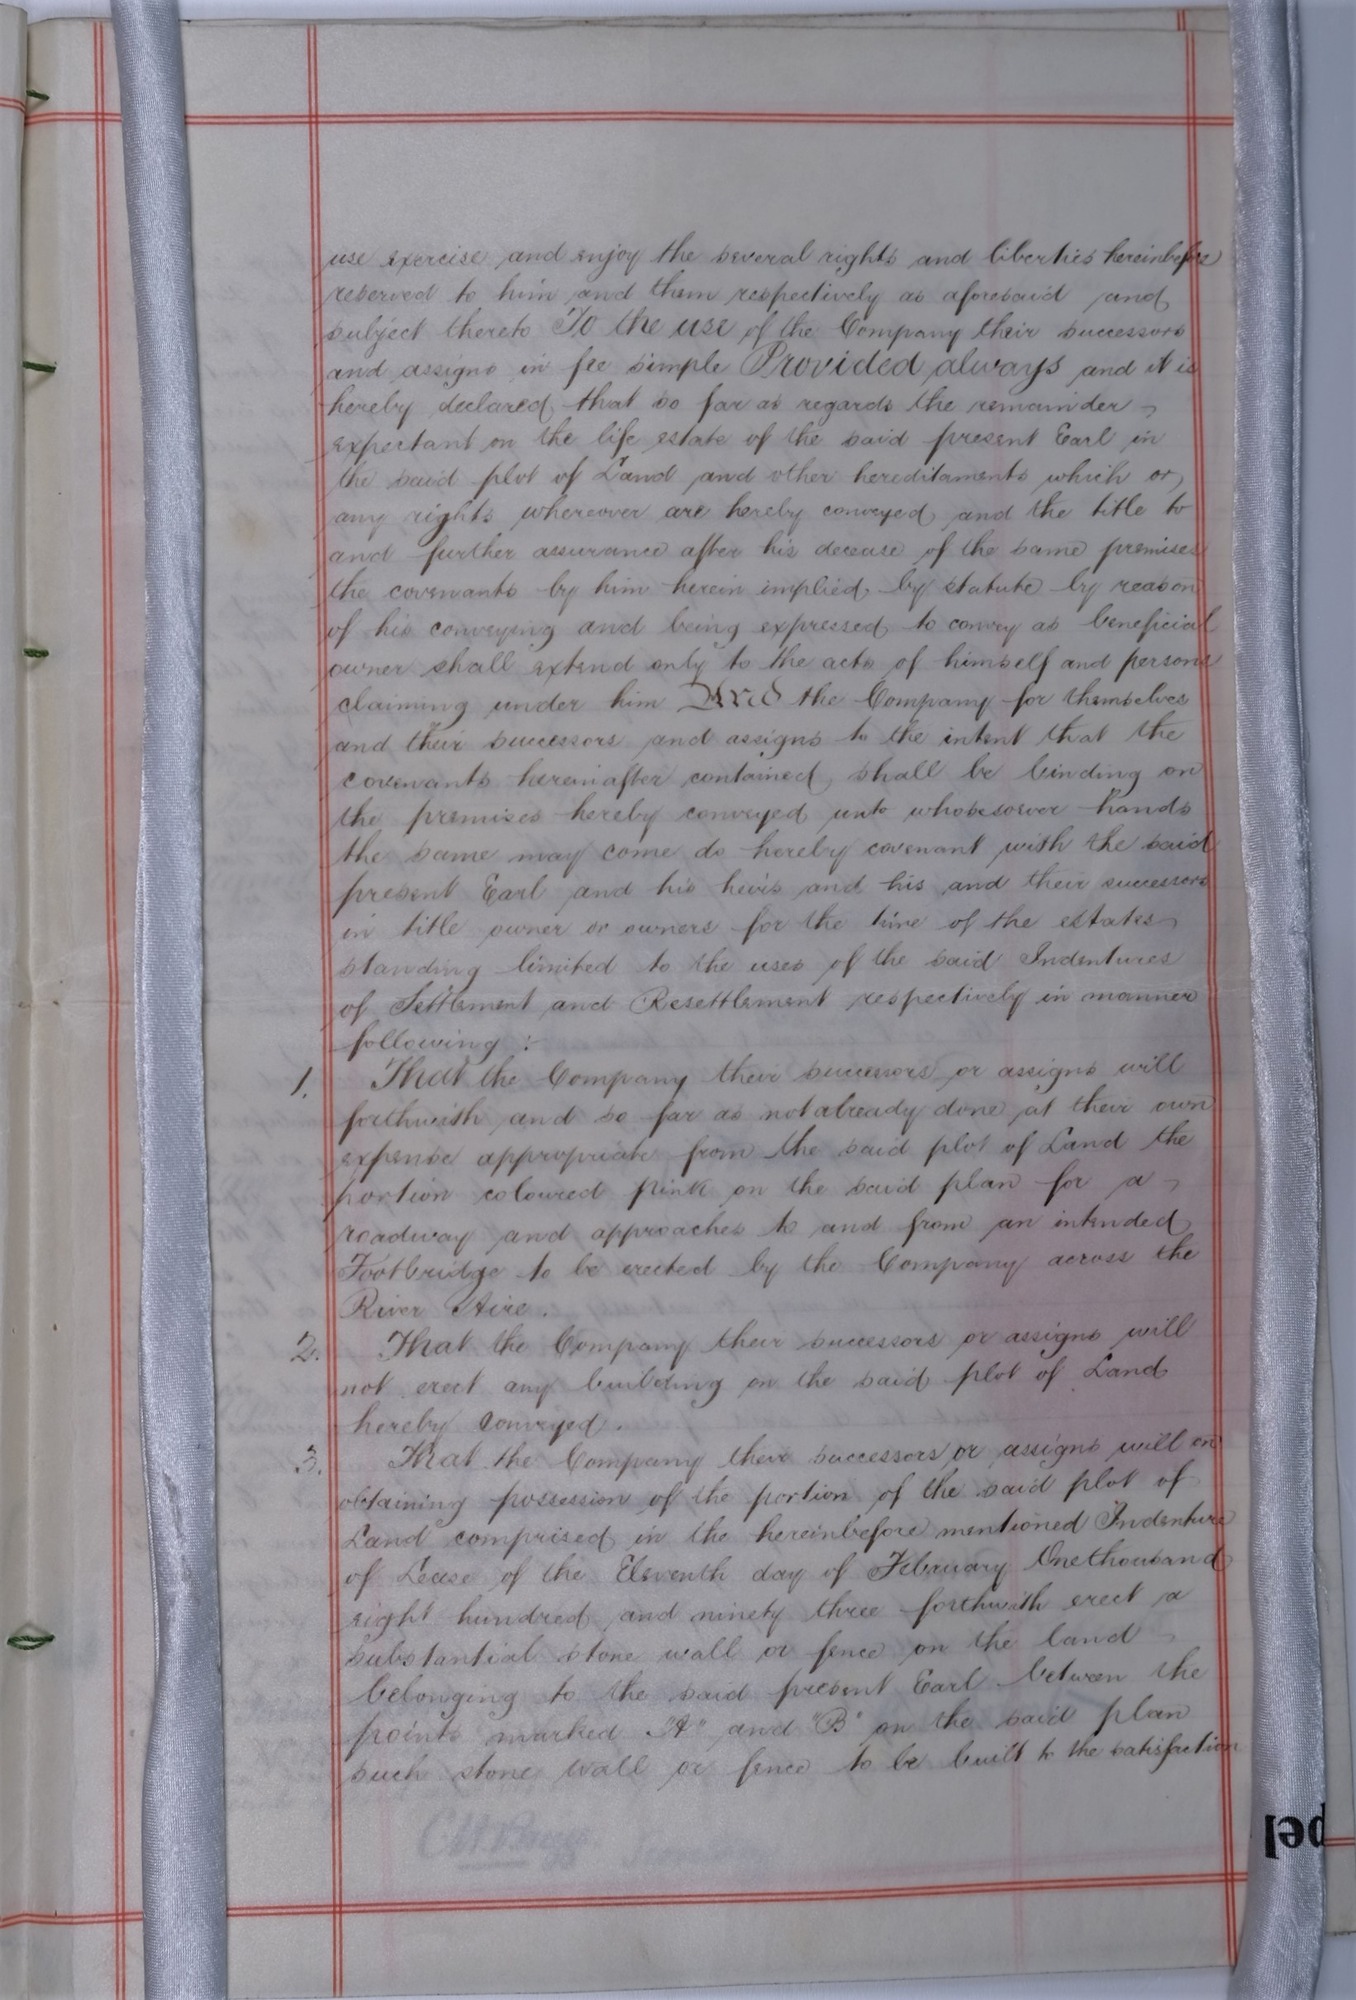 use exercise and enjoy the several rights and liberties hereinbefore
reserved to him and them respectively as aforesaid and
subject thereto To the use of the Company their successors
and assigns in fee simple Provided always and it is
hereby declared that so far as regards the remainder
expectant on the life estate of the said present Earl in
the said plot of Land and other hereditaments which or
any rights whereover are hereby conveyed and the title to
and further assurance after his decease of the same premises
the covenants by him herein implied by statute by reason
of his conveying and being expressed to convey as beneficial
owner shall extend only to the acts of himself and persons
claiming under him And the Company for themselves
and their successors and assigns to the intent that the
covenants hereinafter contained shall be binding on
the premises hereby conveyed unto whosesoever hands
the same may come do hereby covenant with the said
present Earl and his heirs and his and their successors
in title owner or owners for the time of the estates
standing limited to the uses of the said Indentures
of Settlement and Resettlement respectively in manner
following :-
1. That the Company their successors or assigns will
forthwith and so far as not already done at their own
expense appropriate from the said plot of Land the
portion coloured pink on the said plan for a
roadway and approaches to and from an intended
Footbridge to be erected by the Company across the
River Aire.
2. That the Company their successors or assigns will
not erect any building on the said plot of Land
hereby conveyed.
3. That the Company their successors or assigns will on
obtaining possession of the portion of the said plot of
Land comprised in the hereinbefore mentioned Indenture
of Lease of the Eleventh day of February One thousand
eight hundred and ninety three forthwith erect a
substantial stone wall or fence on the land
belonging to the said present Earl between the
points marked "A" and "B" on the said plan
such stone wall or fence to be built to the satisfaction
pel